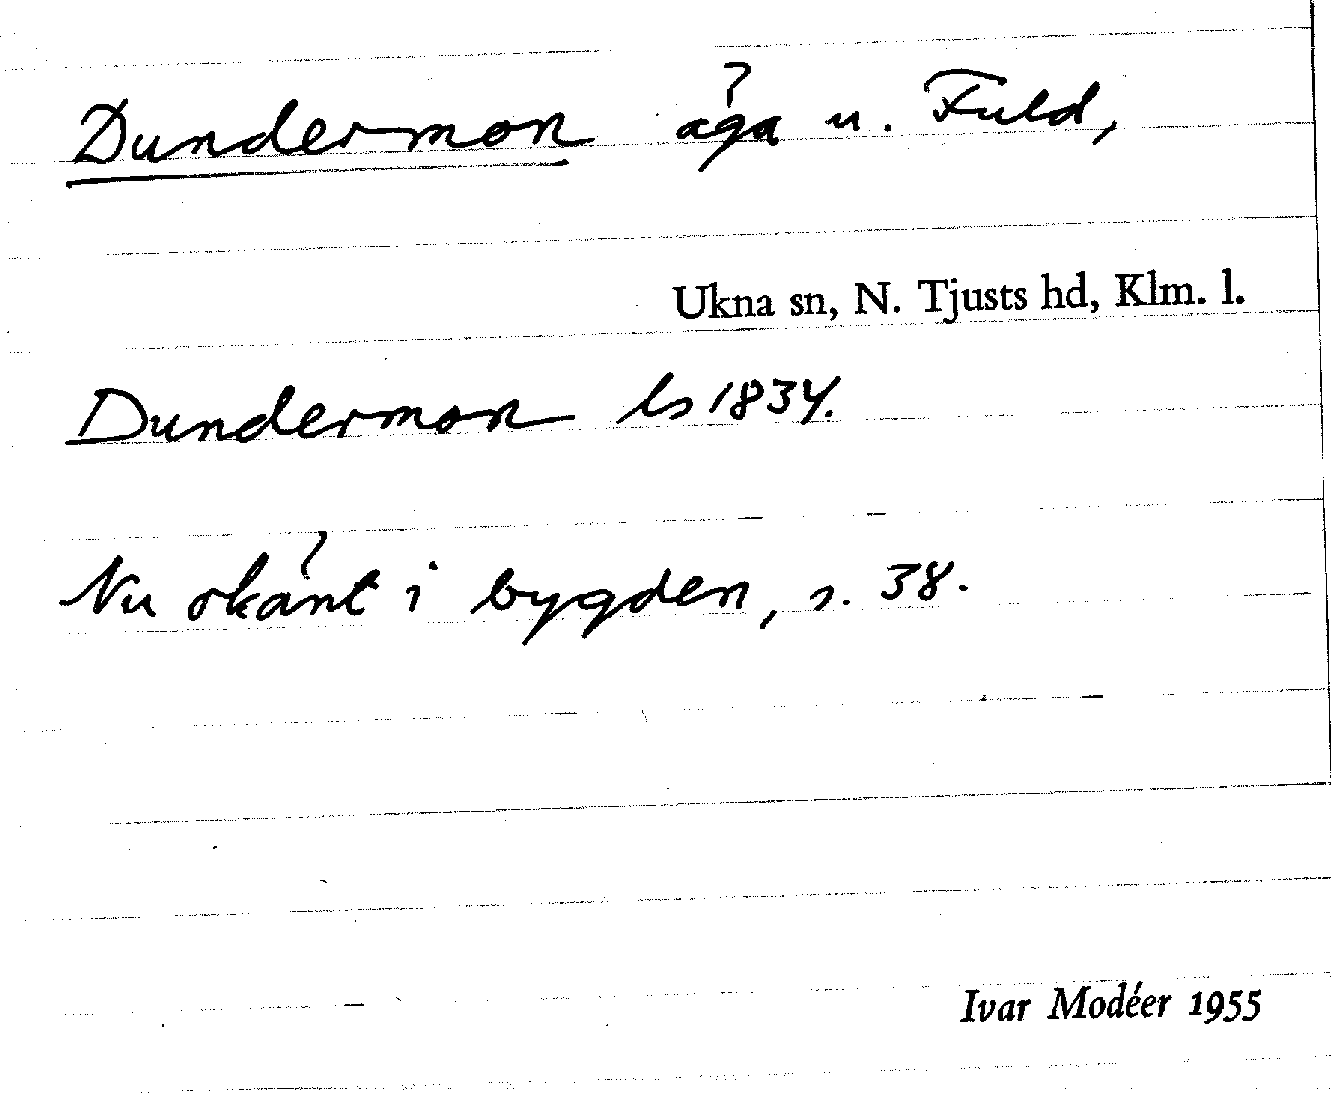 Dundermon äga u. Fuld,
Ukna sn, N. Tjusts hd, Klm. l.
Dundermon ls 1834.
Nu okänt i bygden, s. 38.
Ivar Modéer 1955